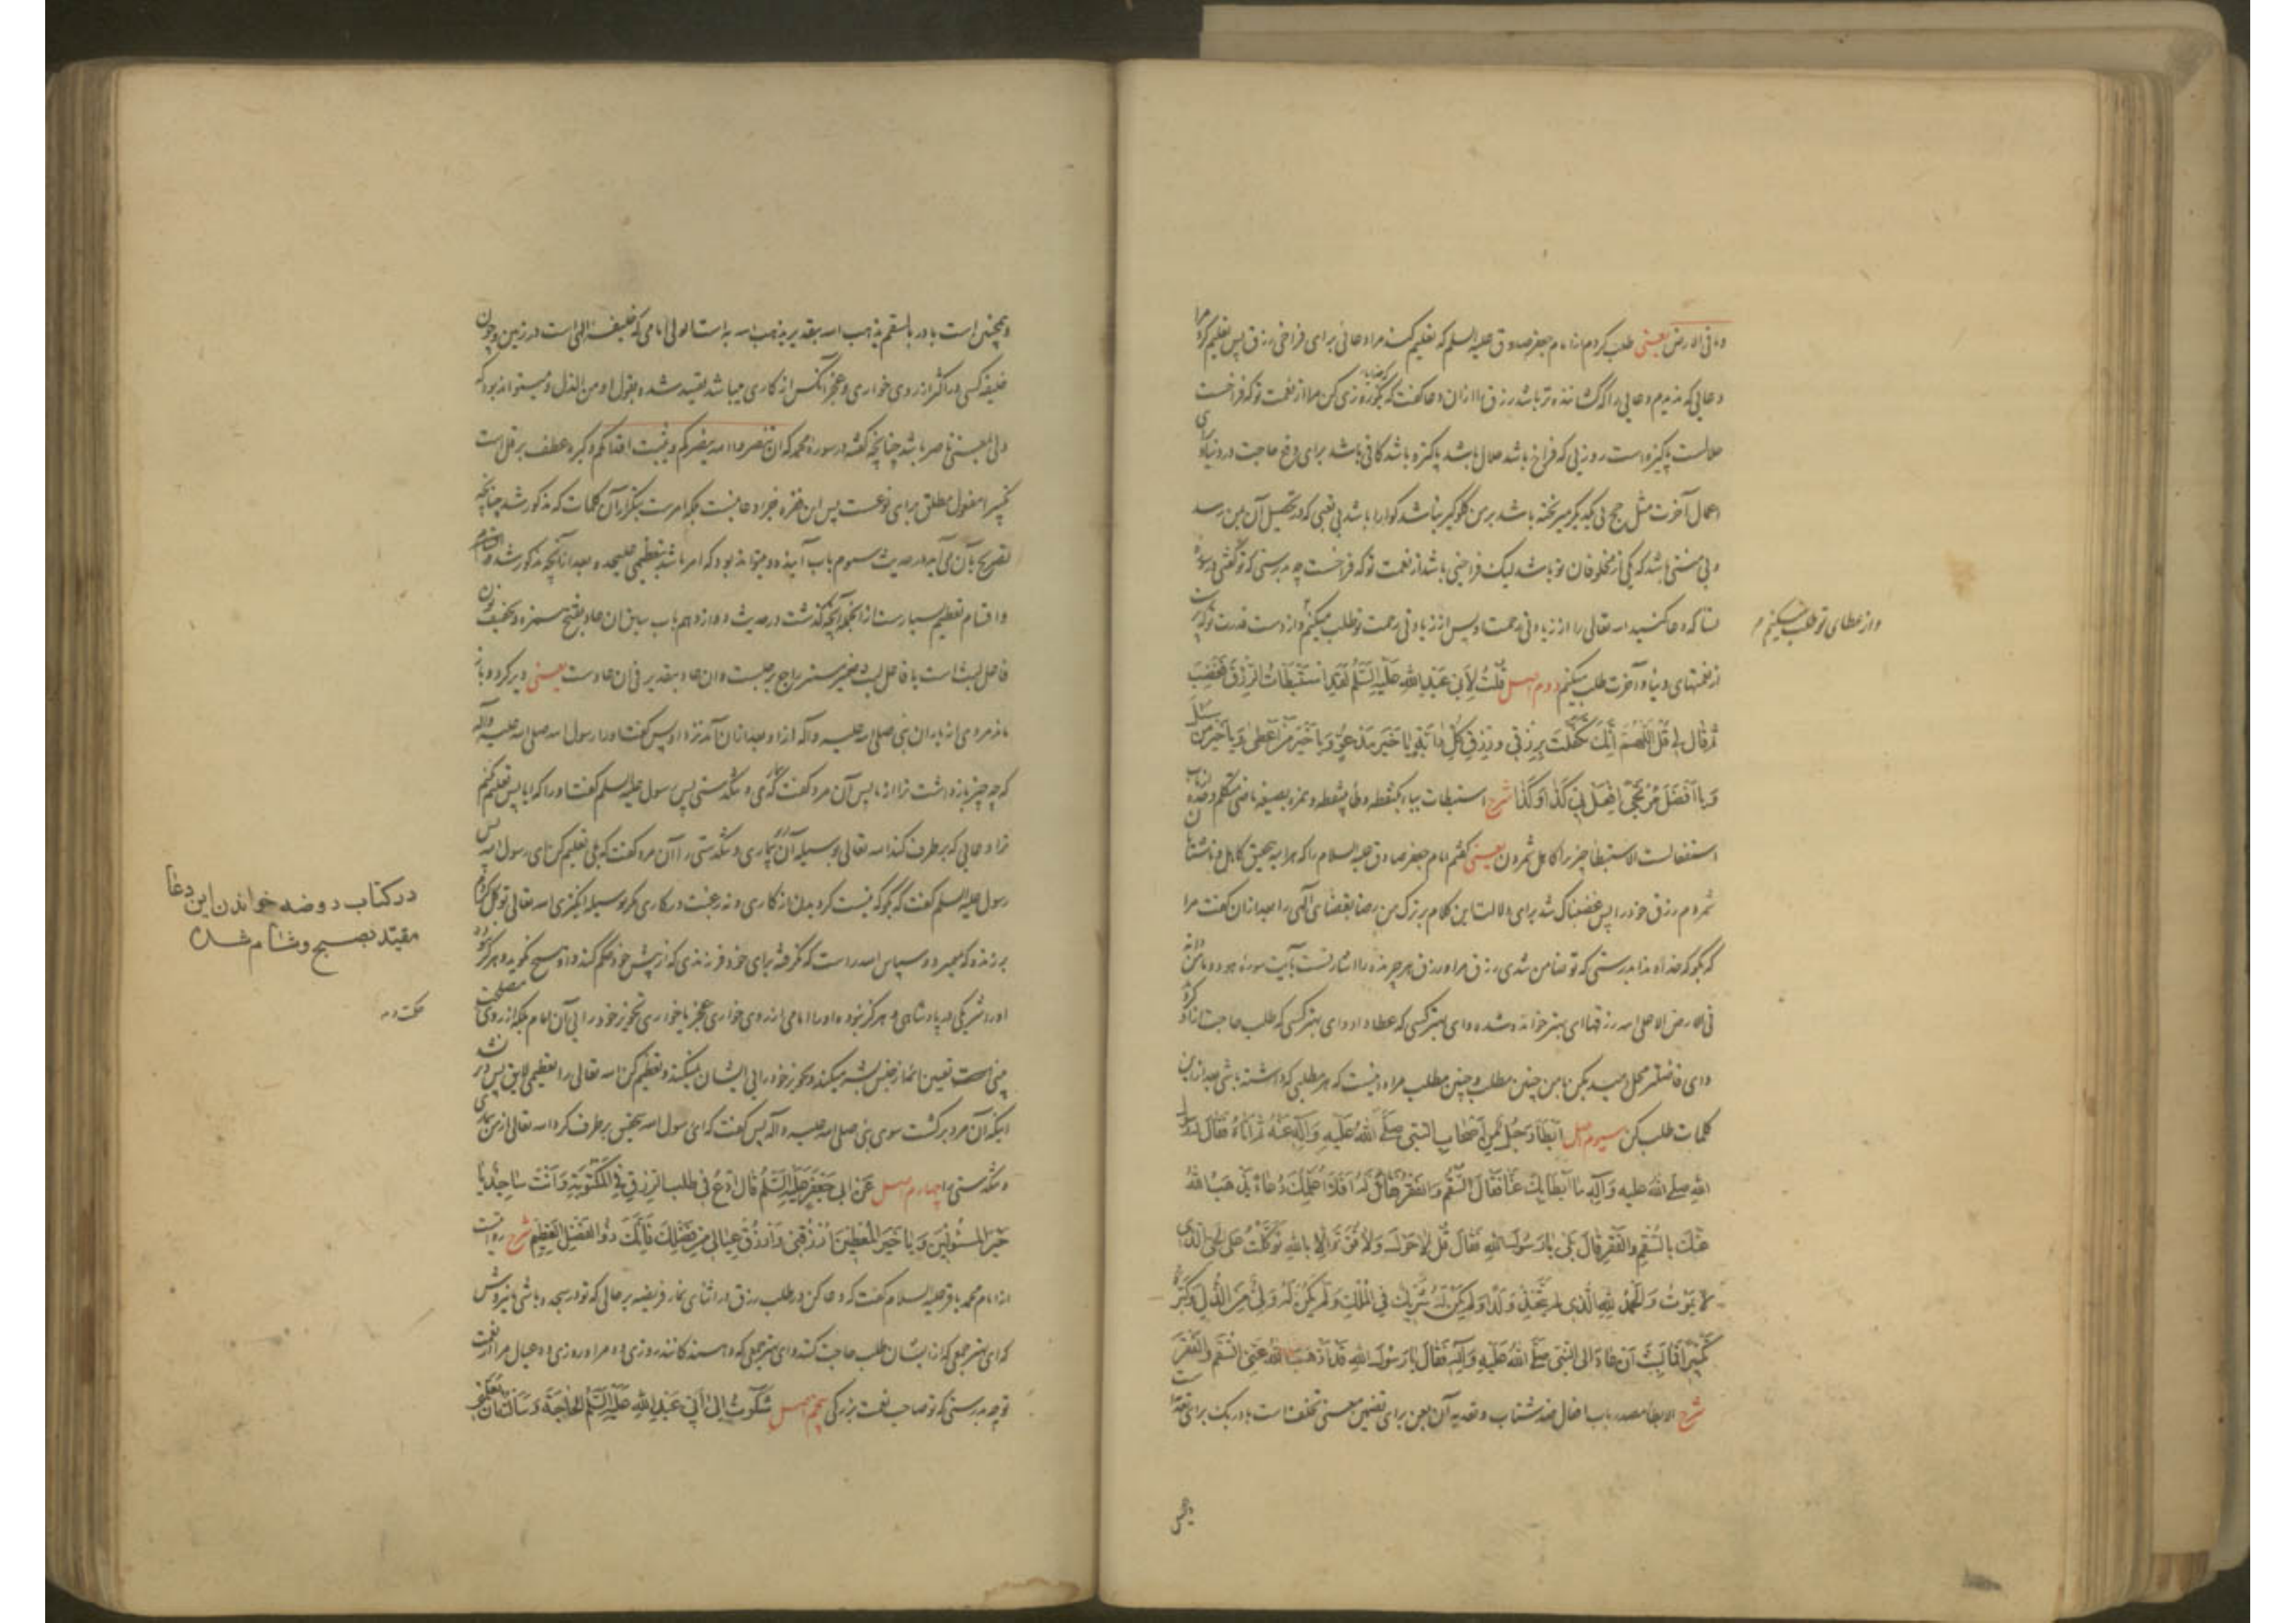 و ما فی الارض یعنی طلب کردم از امام جعفر صادق علیه السلم که تعلیم کند مرا دعائی برای فراخی رزق پس تعلیم کرد مرا
دعایی که ندیدم دعایی را که کشاننده تر باشد رزق را ازان دعا گفت که بگو روزی کن مرا از نعمت تو که فراخست
حلالست پاکیزه است روزیی که فراخ باشد حلال باشد پاکیزه باشد کافی باشد برای رفع حاجت در دنیا و برای
اعمال آخرت مثل حج بی یکدیگر ریخته باشد بر من گلوگیر نباشد گوارا باشد بی تعبی که در تحصیل آن بمن رسد
و بی منتی باشد که یکی از مخلوقان تو باشد لیک فراخیی باشد از نعمت تو که فراخست چه بدرستی که تو گفتی در سوره
نسا که دعا کنید الله تعالی را از زیادتی رحمت او پس از زیادتی رحمت تو طلب میکنم و از دست قدرت تو که پر است
و از عطای تو طلب میکنم م
از نعمتهای دنیا و آخرت طلب میکنم دوم اصل قُلْتُ لِأَبِی عَبْدِ اللهِ عَلَیْهِ السَّلَمُ لَقَدِ اسْتَبْطَأْتُ الرِّزْقَ فَغَضِبَ
ثُمَّ قَالَ لِی قُلِ اللّٰهُمَّ إِنَّكَ تَكَفَّلْتَ بِرِزْقِی وَ رِزْقِ كُلِّ دَابَّةٍ یَا خَیْرَ مَدْعُوٍّ وَ یَا خَیْرَ مَنْ أَعْطَی وَ یَا خَیْرَ مَنْ سُئِلَ
وَ یَا أَفْضَلَ مُرْتَجًی افْعَلْ بِی كَذَا وَ كَذَا شرح استبطات بباء یکنقطه و طاء بینقطه و همزه بصیغه ماضی متکلم وحده از باب
استفعالست الاستبطا چیزی را کاهل شمردن یعنی گفتم امام جعفر صادق علیه السلام را که هر آینه بتحقیق کاهل و ناشتابان
شمردم رزق خود را پس غضبناک شد برای دلالت این کلام بر ترک من رضا بقضای الهی را بعد ازان گفت مرا
که بگو که خداوندا بدرستی که تو ضامن شدی رزق مرا و رزق هر چرنده را اشارتست بآیت سوره هود و ما من دابة
فی الارض الا علی الله رزقها ای بهتر خوانده شده و ای بهتر کسی که عطا داد و ای بهتر کسی که طلب حاجت ازو کرده
و ای فاضلتر محل امید بکن با من چنین مطلب و چنین مطلب مراد اینست که هر مطلبی که داشته باشی بعد ازین
کلمات طلب کن سیوم اصل أَبْطَأَ رَجُلٌ مِنْ أَصْحَابِ النَّبِیِّ صَلَّی اللهُ عَلَیْهِ وَ آلِهِ عَنْهُ ثُمَّ أَتَاهُ فَقَالَ لَهُ رَسُولُ
اللهِ صَلَّی اللهُ عَلَیْهِ وَ آلِهِ مَا أَبْطَأَ بِكَ عَنَّا فَقَالَ السُّقْمُ وَ الْفَقْرُ فَقَالَ لَهُ أَفَلَا أُعَلِّمُكَ دُعَاءً یَذْهَبُ اللهُ
عَنْكَ بِالسُّقْمِ وَ الْفَقْرِ قَالَ بَلَی یَا رَسُولَ اللهِ فَقَالَ قُلْ لَا حَوْلَ وَ لَا قُوَّةَ إِلَّا بِاللهِ تَوَكَّلْتُ عَلَی الْحَیِّ الَّذِی
لَا یَمُوتُ وَ الْحَمْدُ لِلّٰهِ الَّذِی لَمْ یَتَّخِذْ وَلَدًا وَ لَمْ یَكُنْ لَهُ شَرِیكٌ فِی الْمُلْكِ وَ لَمْ یَكُنْ لَهُ وَلِیٌّ مِنَ الذُّلِّ وَ كَبِّرْهُ
تَكْبِیرًا فَمَا لَبِثَ أَنْ عَادَ إِلَی النَّبِیِّ صَلَّی اللهُ عَلَیْهِ وَ آلِهِ فَقَالَ یَا رَسُولَ اللهِ قَدْ أَذْهَبَ اللهُ عَنِّی السُّقْمَ وَ الْفَقْرَ
شرح الابطا مصدر باب افعال ضد شتاب و تعدیه آن بعن برای تضمین معنی تخلف است با در بک برای تعدیه است
و همچنین است با در بالسقم یذهب الله بتقدیر یذهب الله به است الولی امامی که خلیفه الهی است در زمین و چون
خلیفه کسی در اکثر از روی خواری و عجز آنکس از کاری میباشد تقیید شده بقول او من الذل و میتواند بود که
ولی بمعنی ناصر باشد چنانچه گفته در سوره محمد که ان تنصروا الله ینصرکم و یثبت اقدامکم و کبره عطف بر قل است
تکبیرا مفعول مطلق برای نوعست پس این فقره جزو دعا نیست بلکه امرست بتکرار آن کلمات که مذکور شد چنانچه
تصریح بآن می آید در حدیث سیوم باب آینده و میتواند بود که امر باشد بتعظیمی علیحده و بعد از آنچه مذکور شد
و اقسام تعظیم بسیارست از انجمله آنچه گذشت در حدیث دوازدهم باب سابق ان عاد بفتح همزه و تخفیف نون
فاعل لبث است یا فاعل لبث ضمیر مستتر راجع برجلست و ان عاد بتقدیر فی ان عادست یعنی دیر کرد و باز
ماند مردی از یاران نبی صلی الله علیه و آله ازو بعد ازان آمد نزد او پس گفت او را رسول الله صلی الله علیه و آله
که چه چیز باز داشت ترا از ما پس آن مرد گفت که بیماری و تنگدستی پس رسول علیه السلم گفت او را که ایا پس تعلیم نکنم
ترا دعایی که برطرف کند الله تعالی بوسیله آن بیماری و تنگدستی را آن مرد گفت که بلی تعلیم کن ای رسول الله پس
رسول علیه السلم گفت که بگو که نیست گردیدن از کاری و نه رغبت در کاری مگر بوسیله انگیزی الله تعالی توکل کردم
در کتاب روضه خواندن این دعا
مقیّد بصبح و شام شده
بر زنده که نمیرد و سپاس الله راست که نگرفته برای خود فرزندی که از پیش خود حکم کند و او هیچ نگوید و هرگز نبوده
او را شریکی در پادشاهی و هرگز نبوده او را امامی از روی خواری عجز یا خواری تجویز خود رایی آن امام بلکه از روی مصلحت
اینکه آن مرد برگشت سوی نبی صلی الله علیه و آله پس گفت که ای رسول الله بتحقیق برطرف کرد الله تعالی از من بیماری
و تنگدستی را چهارم اصل عَنْ أَبِی جَعْفَرٍ عَلَیْهِ السَّلَمُ قَالَ ادْعُ فِی طَلَبِ الرِّزْقِ فِی الْمَكْتُوبَةِ وَ أَنْتَ سَاجِدٌ یَا
خَیْرَ الْمَسْئُولِینَ وَ یَا خَیْرَ الْمُعْطِینَ ارْزُقْنِی وَ ارْزُقْ عِیَالِی مِنْ فَضْلِكَ فَإِنَّكَ ذُو الْفَضْلِ الْعَظِیمِ شرح روایتست
از امام محمد باقر علیه السلام گفت که دعا کن در طلب رزق در اثنای نماز فریضه بر حالی که تو در سجده باشی باین روش
که ای بهتر جمعی که از ایشان طلب حاجت کنند و ای بهتر جمعی که دهندگانند روزی ده مرا و روزی ده عیال مرا از نعمت
تو چه بدرستی که تو صاحب نعمت بزرگی پنجم اصل شَكَوْتُ إِلَی أَبِی عَبْدِ اللهِ عَلَیْهِ السَّلَمُ الْحَاجَةَ وَ سَأَلْتُهُ أَنْ یُعَلِّمَنِی